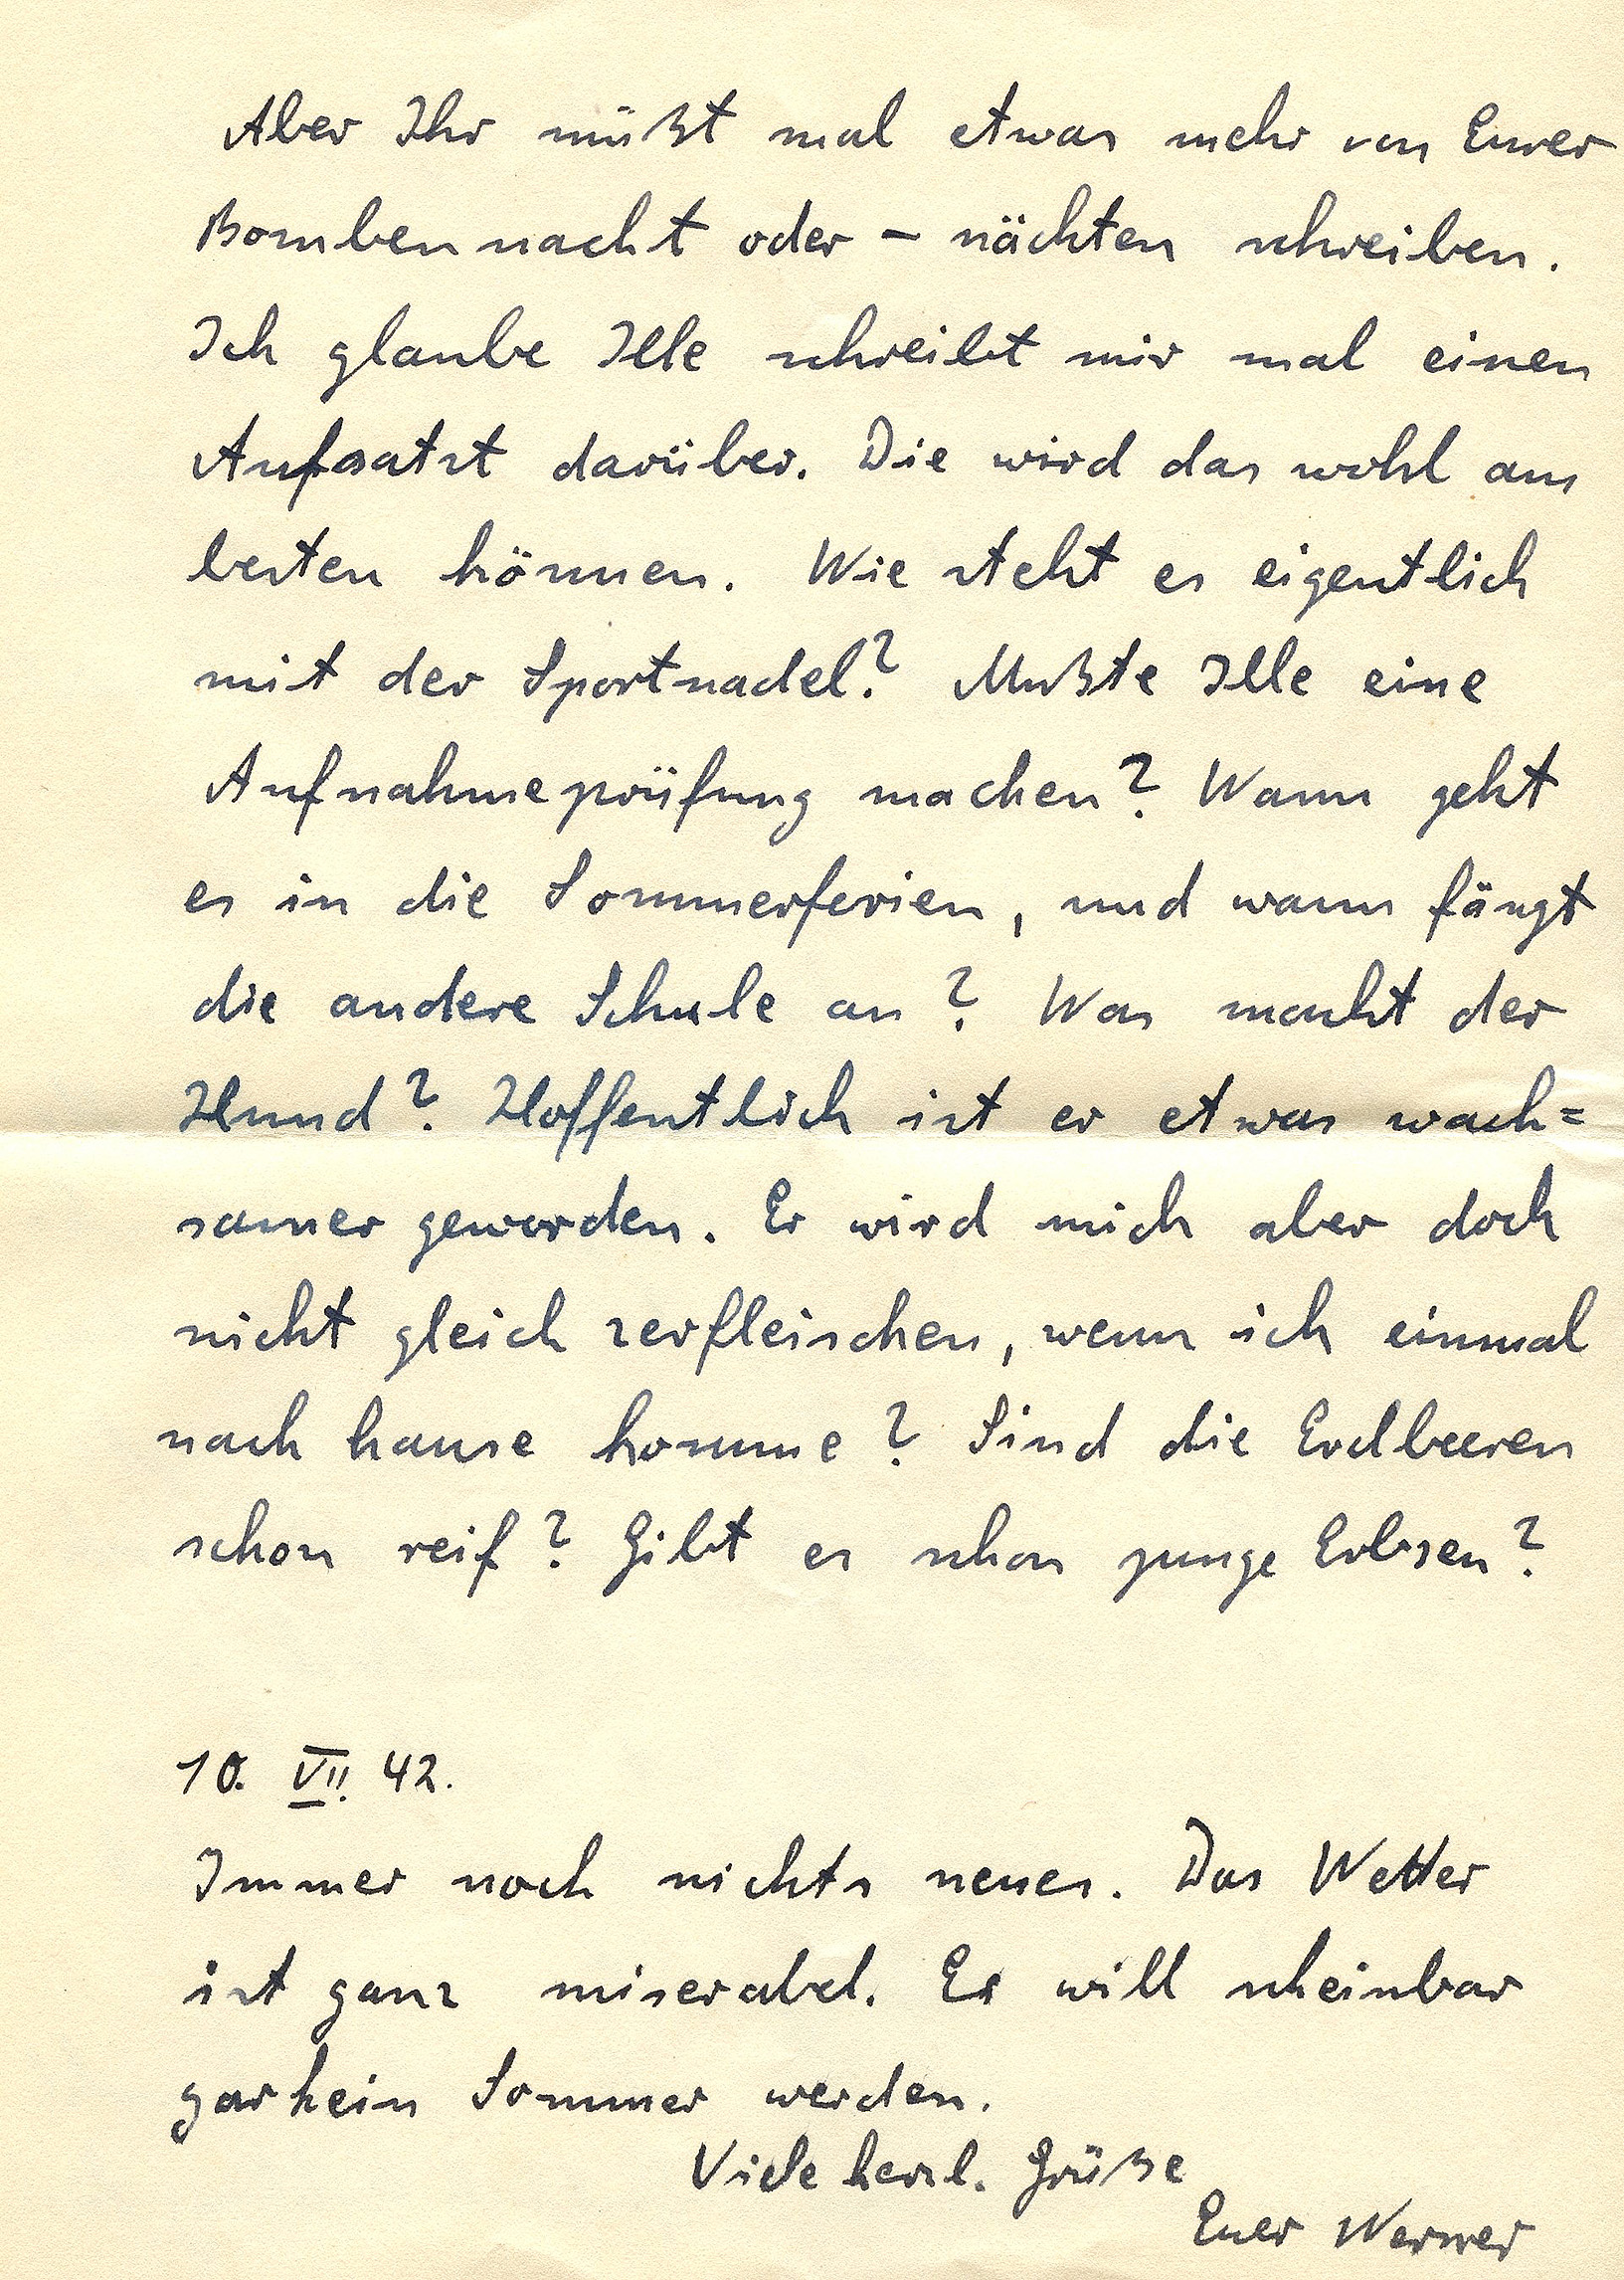 Aber Ihr müßt mal etwas mehr von Eurer
Bombennacht oder - nächten schreiben.
Ich glaube Ille schreibt mir mal einen
Aufsatzt darüber. Die wird das wohl am
besten können. Wie steht es eigentlich
mit der Sportnadel? Mußte Ille eine
Aufnahmeprüfung machen? Wann geht
es in die Sommerferien, und wann fängt
die andere Schule an? Was macht der
Hund? Hoffentlich ist er etwas wach=
samer geworden. Er wird mich aber doch
nicht gleich zerfleischen, wenn ich einmal
nach hause komme? Sind die Erdbeeren
schon reif? Gibt es schon junge Erbsen?
10. VII. 42.
Immer noch nichts neues. Das Wetter
ist ganz miserabel. Es will scheinbar
gar kein Sommer werden.
Viele herzl. Grüße
Euer Werner